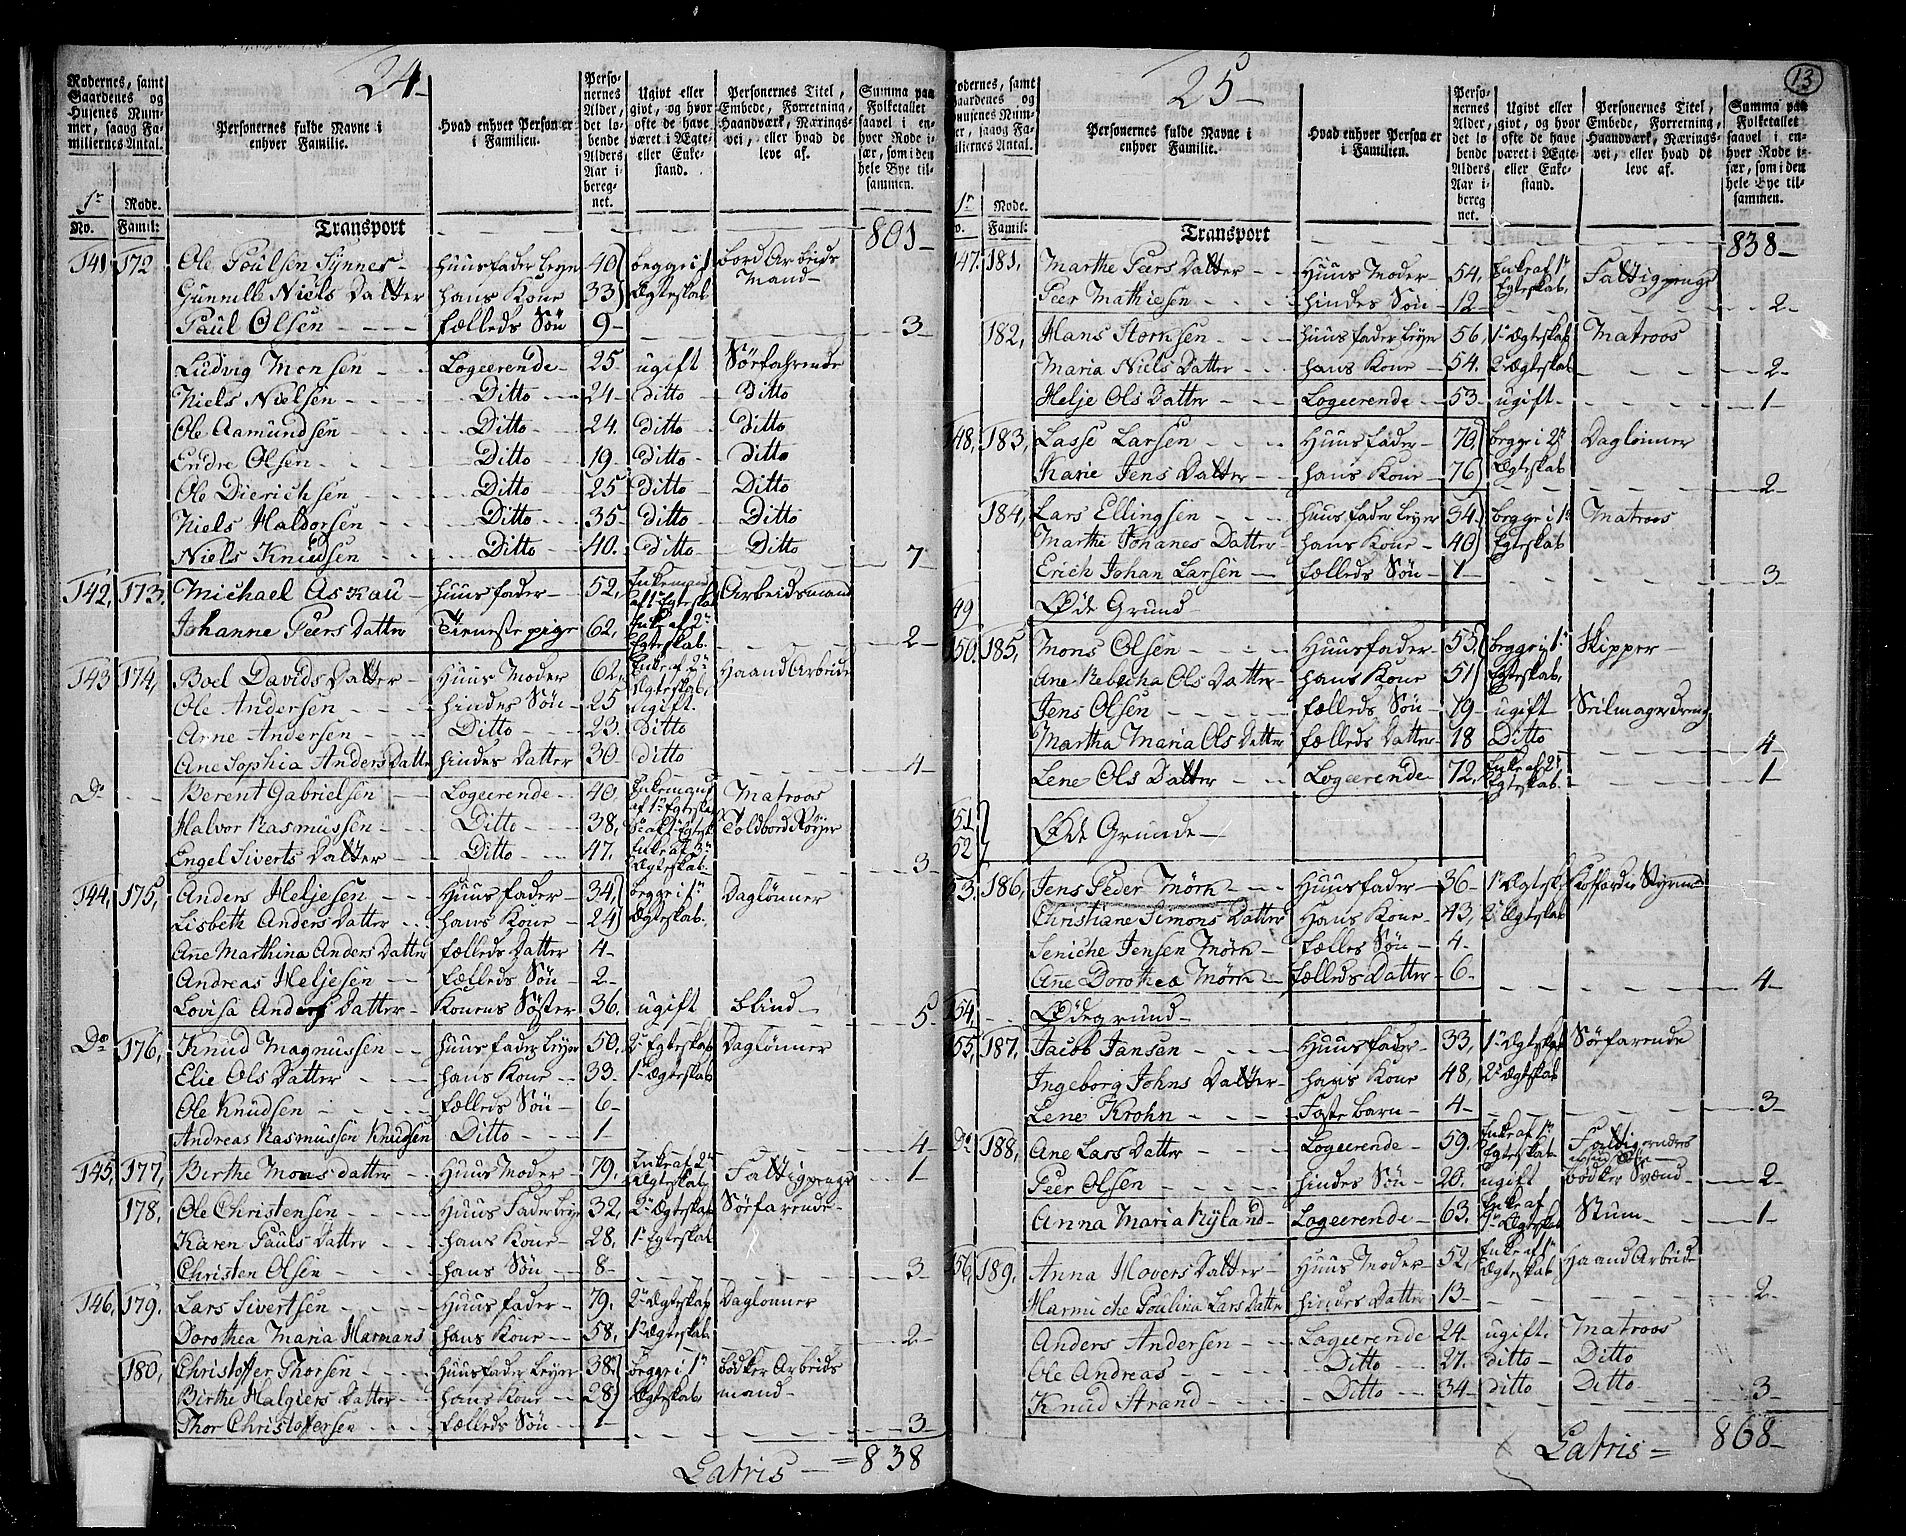 24
Rodernes, samt Gaardenes og Husenes Nummer, saavg Familiernes Antal.
Personernes fulde Navne i enhver Familie.
Hvad enhver Person er i Familien.
Personernes Alder, det løbende Alders Aar iberegnet.
Ugivt eller givt, og hvor ofte de have været i Ægte- eller Enkestand.
Personernes Titel, Embede, Forretning, Haandværk, Næringsvei, eller hvad de leve af.
Summa paa Folketallet saavel i enhver Rode især, som i den hele Bye tilsammen.
1r Rode.
No. Famil:
Transport 801
141 172 Ole Poulsen Synnes Huusfader Leyer 40 begge i 1 bord Arbeids
Gunnille Niels Datter hans Kone 33 Ægteskab Mand
Paul Olsen fælleds Søn 9 3
Ludvig Monsen Logeerende 25 ugift Sørfahrende
Niels Nielsen Ditto 24 ditto Ditto
Ole Aamundsen Ditto 24 Ditto Ditto
Endre Olsen Ditto 19 Ditto Ditto
Ole Dierichsen Ditto 25 Ditto Ditto
Niels Haldorsen Ditto 35 Ditto Ditto
Niels Knudsen Ditto 40 Ditto Ditto 7
142 173 Michael Askau Huusfader 52 Enkemand af 1te Egteskab Arbeidsmand
Johanne Peers Datter Tieneste pige 62 Enke af 2n Egteskab 2
143 174 Boel Davids Datter Huus Moder 62 Enke af 2n Ægteskab Haand Arbeide
Ole Andersen hindes Søn 25 ugift
Arne Andersen Ditto 23 Ditto
Ane Sophia Anders Datter hindes Datter 30 ditto 4
Do Berent Gabrielsen Logeerende 40 Enkemand af 1te Egteskab Matroos
Halvor Rasmussen Ditto 38 Toldbord Røyer
Engel Siverts Datter Ditto 47 Enke af 3n Ægteskab 3
144 175 Anders Heljesen Huusfader 34 begge i 1n Daglønner
Lisbeth Anders Datter hans Kone 24 Ægteskab
Ane Marthina Anders Datter fælleds Datter 4
Andreas Heljesen fælleds Søn 2
Lovisa Anders Datter Konens Søster 36 ugift blind 5
Do 176 Knud Magnussen Huusfader Leyer 50 2 Egteskab Daglønner
Elie Ols Datter hans Kone 33 1 Ægteskab
Ole Knudsen fælleds Søn 6
Andreas Rasmussen Knudsen Ditto 1 4
145 177 Birthe Mons datter Huus Moder 79 Enke af 2n Ægteskab Fattigpenge 1
178 Ole Christensen Huus Fader Leyer 32 2 Ægteskab Sørfarende
Karen Pauls Datter hans Kone 28 1 Egteskab
Christen Olsen hans Søn 8 3
146 179 Lars Sivertsen Huusfader 79 2 Ægteskab Daglønner
Dorothea Maria Harmans hans Kone 58 1 Ægteskab 2
180 Christoffer Thorsen Huusfader Leyer 38 begge i 1n bødker Arbeids
Birthe Halgiers Datter hans Kone 28 Ægteskab mand
Thor Christoffersen fælleds Søn 1 3
Latris 838
13
25
Rodernes, samt Gaardenes og Husenes Nummer, saavg Familiernes Antal.
Personernes fulde Navne i enhver Familie.
Hvad enhver Person er i Familien.
Personernes Alder, det løbende Alders Aar iberegnet.
Ugivt eller givt, og hvor ofte de have været i Ægte- eller Enkestand.
Personernes Titel, Embede, Forretning, Haandværk, Næringsvei, eller hvad de leve af.
Summa paa Folketallet saavel i enhver Rode især, som i den hele Bye tilsammen.
1r Rode.
Famil:
Transport 838
147 181 Marthe Peers Datter Huus Moder 54 Enke af 1n Egteskab Fattigpenge
Peer Mathiesen hindes Søn 12 2
182 Hans Storksen Huusfader Leyer 56 1 Ægteskab Matroos
Maria Niels Datter hans Kone 54 2 Ægteskab 2
Helje Ols Datter Logeerende 53 ugift 1
48 183 Lasse Larsen Huusfader 70 begge i 2n Dagløinner
Karie Jens Datter hans Kone 76 Ægteskab 2
184 Lars Ellingsen Huusfader Leyer 34 begge i 1n Matroos
Marthe Johanes Datter hans Kone 40 Egteskab
Erich Johan Larsen fælleds Søn 1 3
49 Øde Grund
150 185 Mons Olsen Huusfader 53 begge i 1n Skipper
Ane Rebecha Ols Datter hans Kone 51 Egteskab
Jens Olsen fælleds Søn 19 ugift Seilmagerdreng
Martha Maria Ols Datter fælleds Datter 18 Ditto 4
Lene Ols Datter Logeerende 72 Enke af 2n Egteskab 1
51 52 Øde Grunde
53 186 Jens Peder Mørk Huusfader 36 1 Ægtesk Koffardie Styrmd
Christiane Simons Datter Hans Kone 43 2 Ægteskab
Seniche Jensen Mørk fælles Søn 4
Ane Dorothea Mørk fælleds Datter 6 4
54 Ødegrund
55 187 Jacob Jansen Huusfader 33 1 Ægteskab Sørfarende
Ingeborg Johns Datter hans Kone 48 2 Ægteskab
Lene Krohn Foster barn 4 3
Do 188 Ane Lars Datter Logeerende 59 Enke af 1n Egteskab
Peer Olsen hindes Søn 20 ugift bødker Svænd 2
Anna Maria Ryland Logeerende 63 Enke af 1n Ægteskab Stum 1
156 189 Anna Hovers Datter Huus Moder 52 Enke af 1n Ægteskab Haand Arbeid
Harmiche Poulina Lars Datter hindes Datter 13 2
Anders Andersen Logeerende 24 ugift Matroos
Ole Andreas Ditto 27 ditto Ditto
Knud Strand Ditto 34 ditto Ditto 3
Latris 868